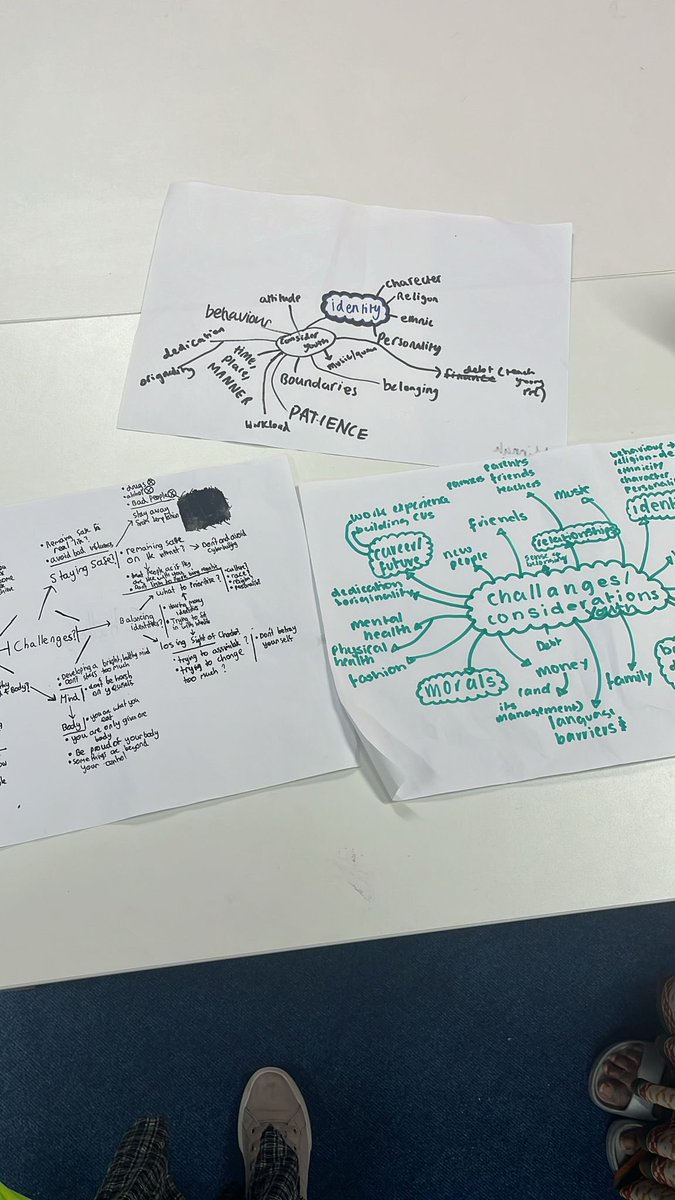 charecter
Religun
ethnic
Personality
identity
attitude
behaviour
consider
youth
dedication
origanality
time,
place,
MANNER
workload
PATIENCE
Boundaries
belonging
debt (teach
finance young
ppl)
• drugs
• Bad People
stay away
from temptation
• Remain safe in
real life?
• avoid bad
staying safe?
• remaining safe
on the what?
→ Don't and avoid
cyberbullying
Challenges!
Balancing
identities?
what to prioritise?
• having many
identities
• Trying to fit
in with
• culture
• race
• religion
losing sight of
• trying to assimilate?
• trying to change
too much?
• Don't betray
yourself
• Developing a bright, healthy mind
• Don't stress too much
Mind
• don't be harsh
on yourself
Body
• you are what you
eat
• you are only given one
body
• Be proud of your body
• some things are beyond
your control
parents
friends
teachers
music
behaviour
religion
ethnicity
character
personality
work experience
building CVs
career/
future
friends
relationships
sense of
belonging
new
people
dedication
originality
challanges/
considerations
youth
mental
health
physical
health
fashion
morals
Debt
money
(and
its
management)
language
barriers
family